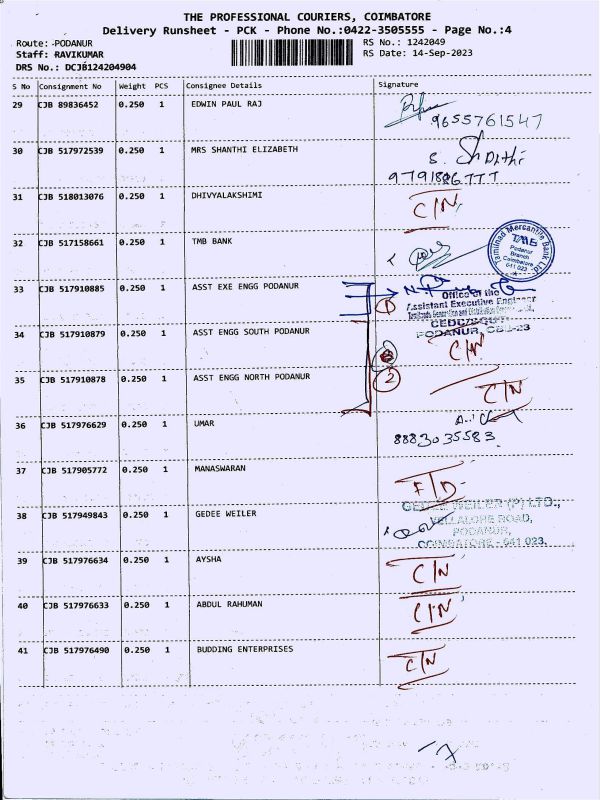 THE PROFESSIONAL COURIERS, COIMBATORE
Delivery Runsheet - PCK - Phone No.:0422-3505555 - Page No.:4
Route: PODANUR
RS No.: 1242049
Staff: RAVIKUMAR
RS Date: 14-Sep-2023
DRS No.: DCJB124204904
S No Consignment No Weight PCS Consignee Details Signature
29 CJB 89836452 0.250 1 EDWIN PAUL RAJ
9655761547
30 CJB 517972539 0.250 1 MRS SHANTHI ELIZABETH
S. Shanthi
31 CJB 518013076 0.250 1 DHIVYALAKSHIMI
C/N
32 CJB 517158661 0.250 1 TMB BANK
Tamilnad Mercantile Bank Ltd.
TMB
Podanur
Branch
Coimbatore
641 023
33 CJB 517910885 0.250 1 ASST EXE ENGG PODANUR
1
Office of the
Assistant Executive Engineer
PODANUR, CBE-23
34 CJB 517910879 0.250 1 ASST ENGG SOUTH PODANUR
C/N
35 CJB 517910878 0.250 1 ASST ENGG NORTH PODANUR
2
C/N
36 CJB 517976629 0.250 1 UMAR
8883035583
37 CJB 517905772 0.250 1 MANASWARAN
F/D
38 CJB 517949843 0.250 1 GEDEE WEILER
GEDEE WEILER (P) LTD.,
VELLALORE ROAD,
PODANUR,
COIMBATORE - 641 023.
39 CJB 517976634 0.250 1 AYSHA
C/N
40 CJB 517976633 0.250 1 ABDUL RAHUMAN
C/N
41 CJB 517976490 0.250 1 BUDDING ENTERPRISES
C/N